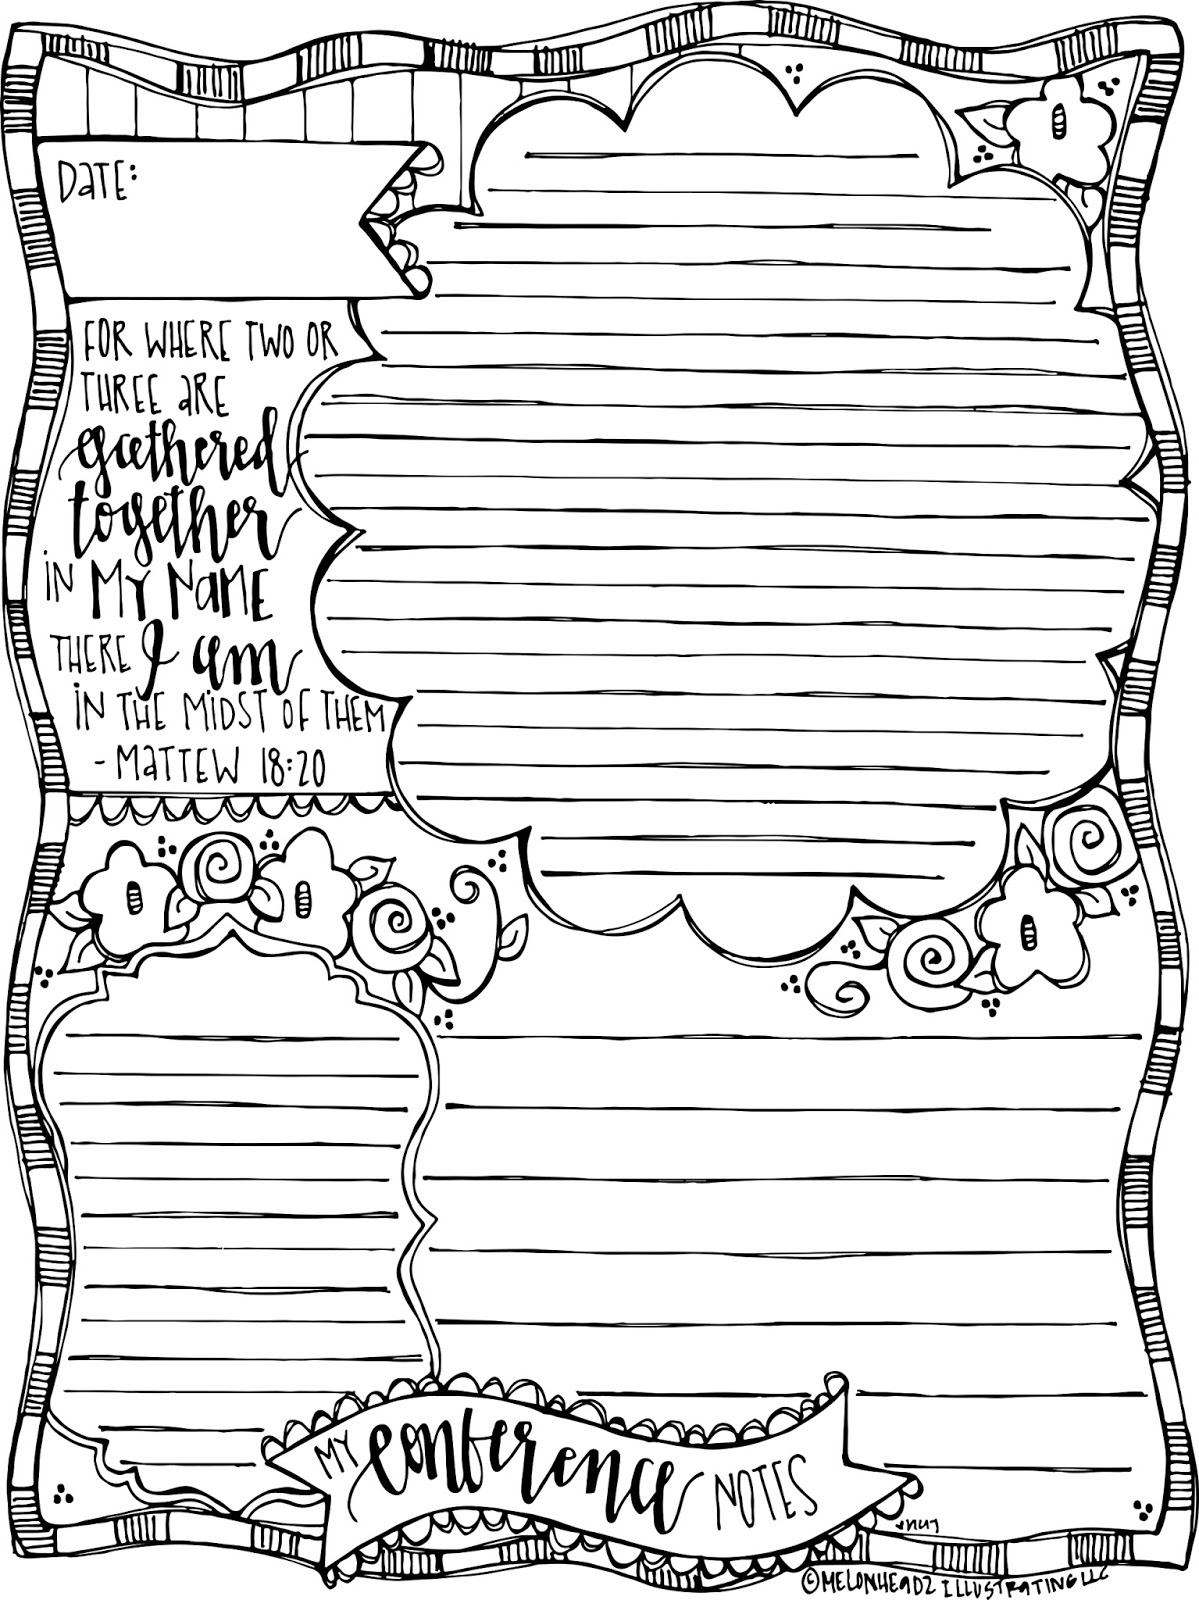 DATE:
FOR WHERE TWO OR
THREE ARE
gathered
together
IN MY NAME
THERE I am
IN THE MIDST OF THEM
- MATTEW 18:20
MY conference NOTES
©MELONHEADZ ILLUSTRATING LLC